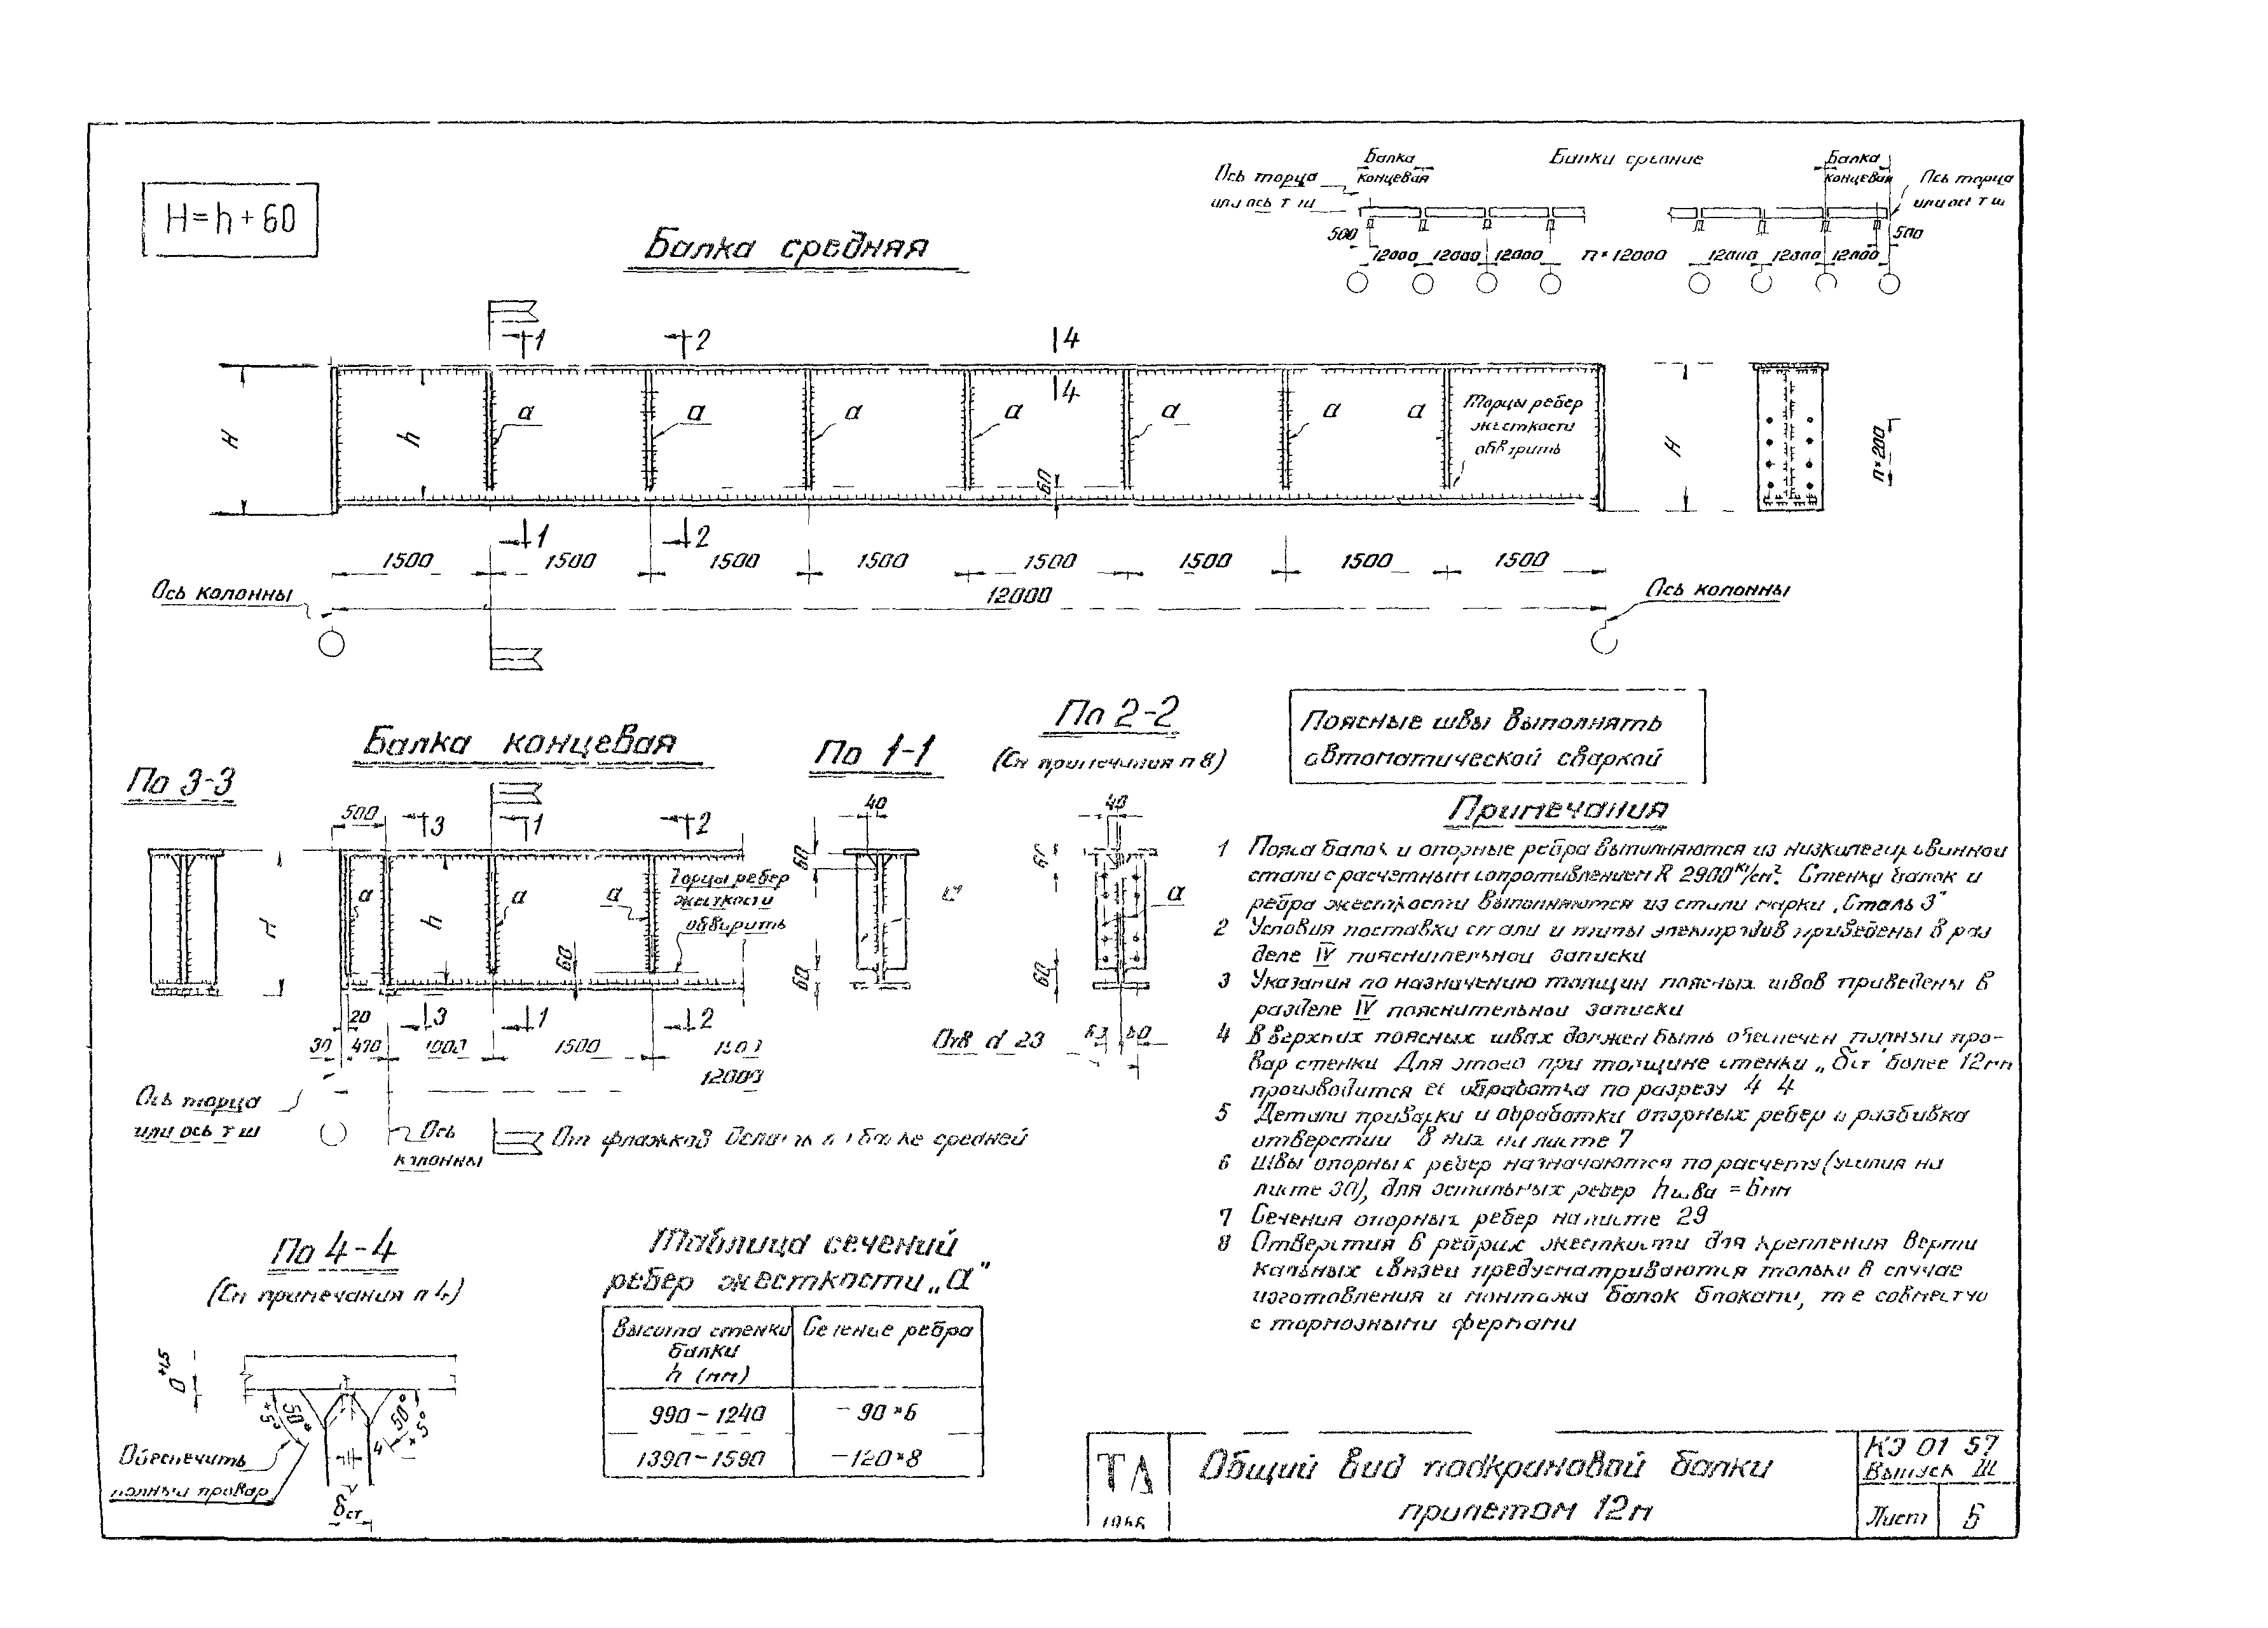 H=h+60
Балка средняя
Балка
концевая
Балки средние
Балка
концевая
Ось торца
или ось т ш
Ось торца
или ось т ш
500
12000 12000 12000 п×12000 12000 12000 12000
500
1 2 4
H h a a a a a a a
4
Торцы ребер
жесткости
обварить
60
H
п×200
1 2
1500 1500 1500 1500 1500 1500 1500 1500
12000
Ось колонны
Ось колонны
По 3-3
Балка концевая
500 3 1 2
a h a a
Торцы ребер
жесткости
обварить
60
H
20 3 1 2
30 470 1000 1500 1500
12000
Ось торца
или ось т ш
Ось
колонны
От флажков
средней
По 1-1
40
60
60
По 2-2
(См примечания п 8)
40
60
a
60
Отв d 23
Поясные швы выполнять
автоматической сваркой
Примечания
1 Пояса балок и опорные ребра выполняются из низколегированной
стали с расчетным сопротивлением R 2900 кг/см². Стенки балок и
ребра жесткости выполняются из стали марки „Сталь 3"
2 Условия поставки стали и типы электродов приведены в раз
деле IV пояснительной записки
3 Указания по назначению толщин поясных швов приведены в
разделе IV пояснительной записки
4 В верхних поясных швах должен быть обеспечен полный про-
вар стенки Для этого при толщине стенки „δст" более 12мм
производится ее обработка по разрезу 4 4
5 Детали приварки и обработки опорных ребер и разбивка
отверстий в них на листе 7
6 Швы опорных ребер назначаются по расчету (усилия на
листе 30), для остальных ребер hшва = 6мм
7 Сечения опорных ребер на листе 29
8 Отверстия в ребрах жесткости для крепления верти
кальных связей предусматриваются только в случае
изготовления и монтажа балок блоками, т е совместно
с тормозными фермами
По 4-4
(См примечания п 4)
0 +1,5
50° ±5°
50° ±5°
4
Обеспечить
полный провар
δст
Таблица сечений
ребер жесткости „а"
Высота стенки
балки
h (мм)
Сечение ребра
990-1240 -90×6
1390-1590 -120×8
ТД
1966
Общий вид подкрановой балки
пролетом 12м
КЭ 01 57
Выпуск III
Лист 6